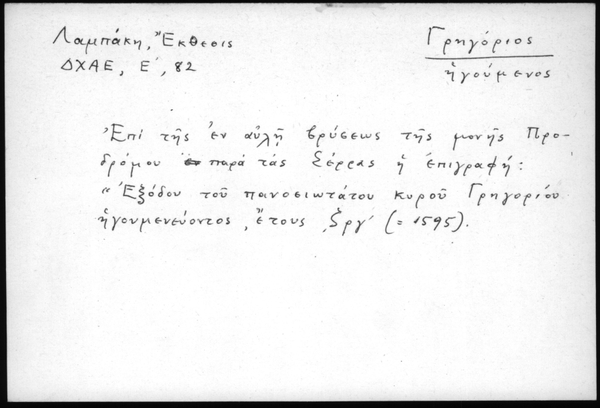 Λαμπάκη, Ἔκθεσις
ΔΧΑΕ, Ε΄, 82
Γρηγόριος
ἡγούμενος
Ἐπί τῆς ἐν αὐλῇ βρύσεως τῆς μονῆς Προ-
δρόμου παρά τάς Σέρρας ἡ ἐπιγραφή:
"Ἐξόδου τοῦ πανοσιωτάτου κυροῦ Γρηγορίου
ἡγουμενεύοντος, ἔτους ͵ζργ΄ (= 1595).